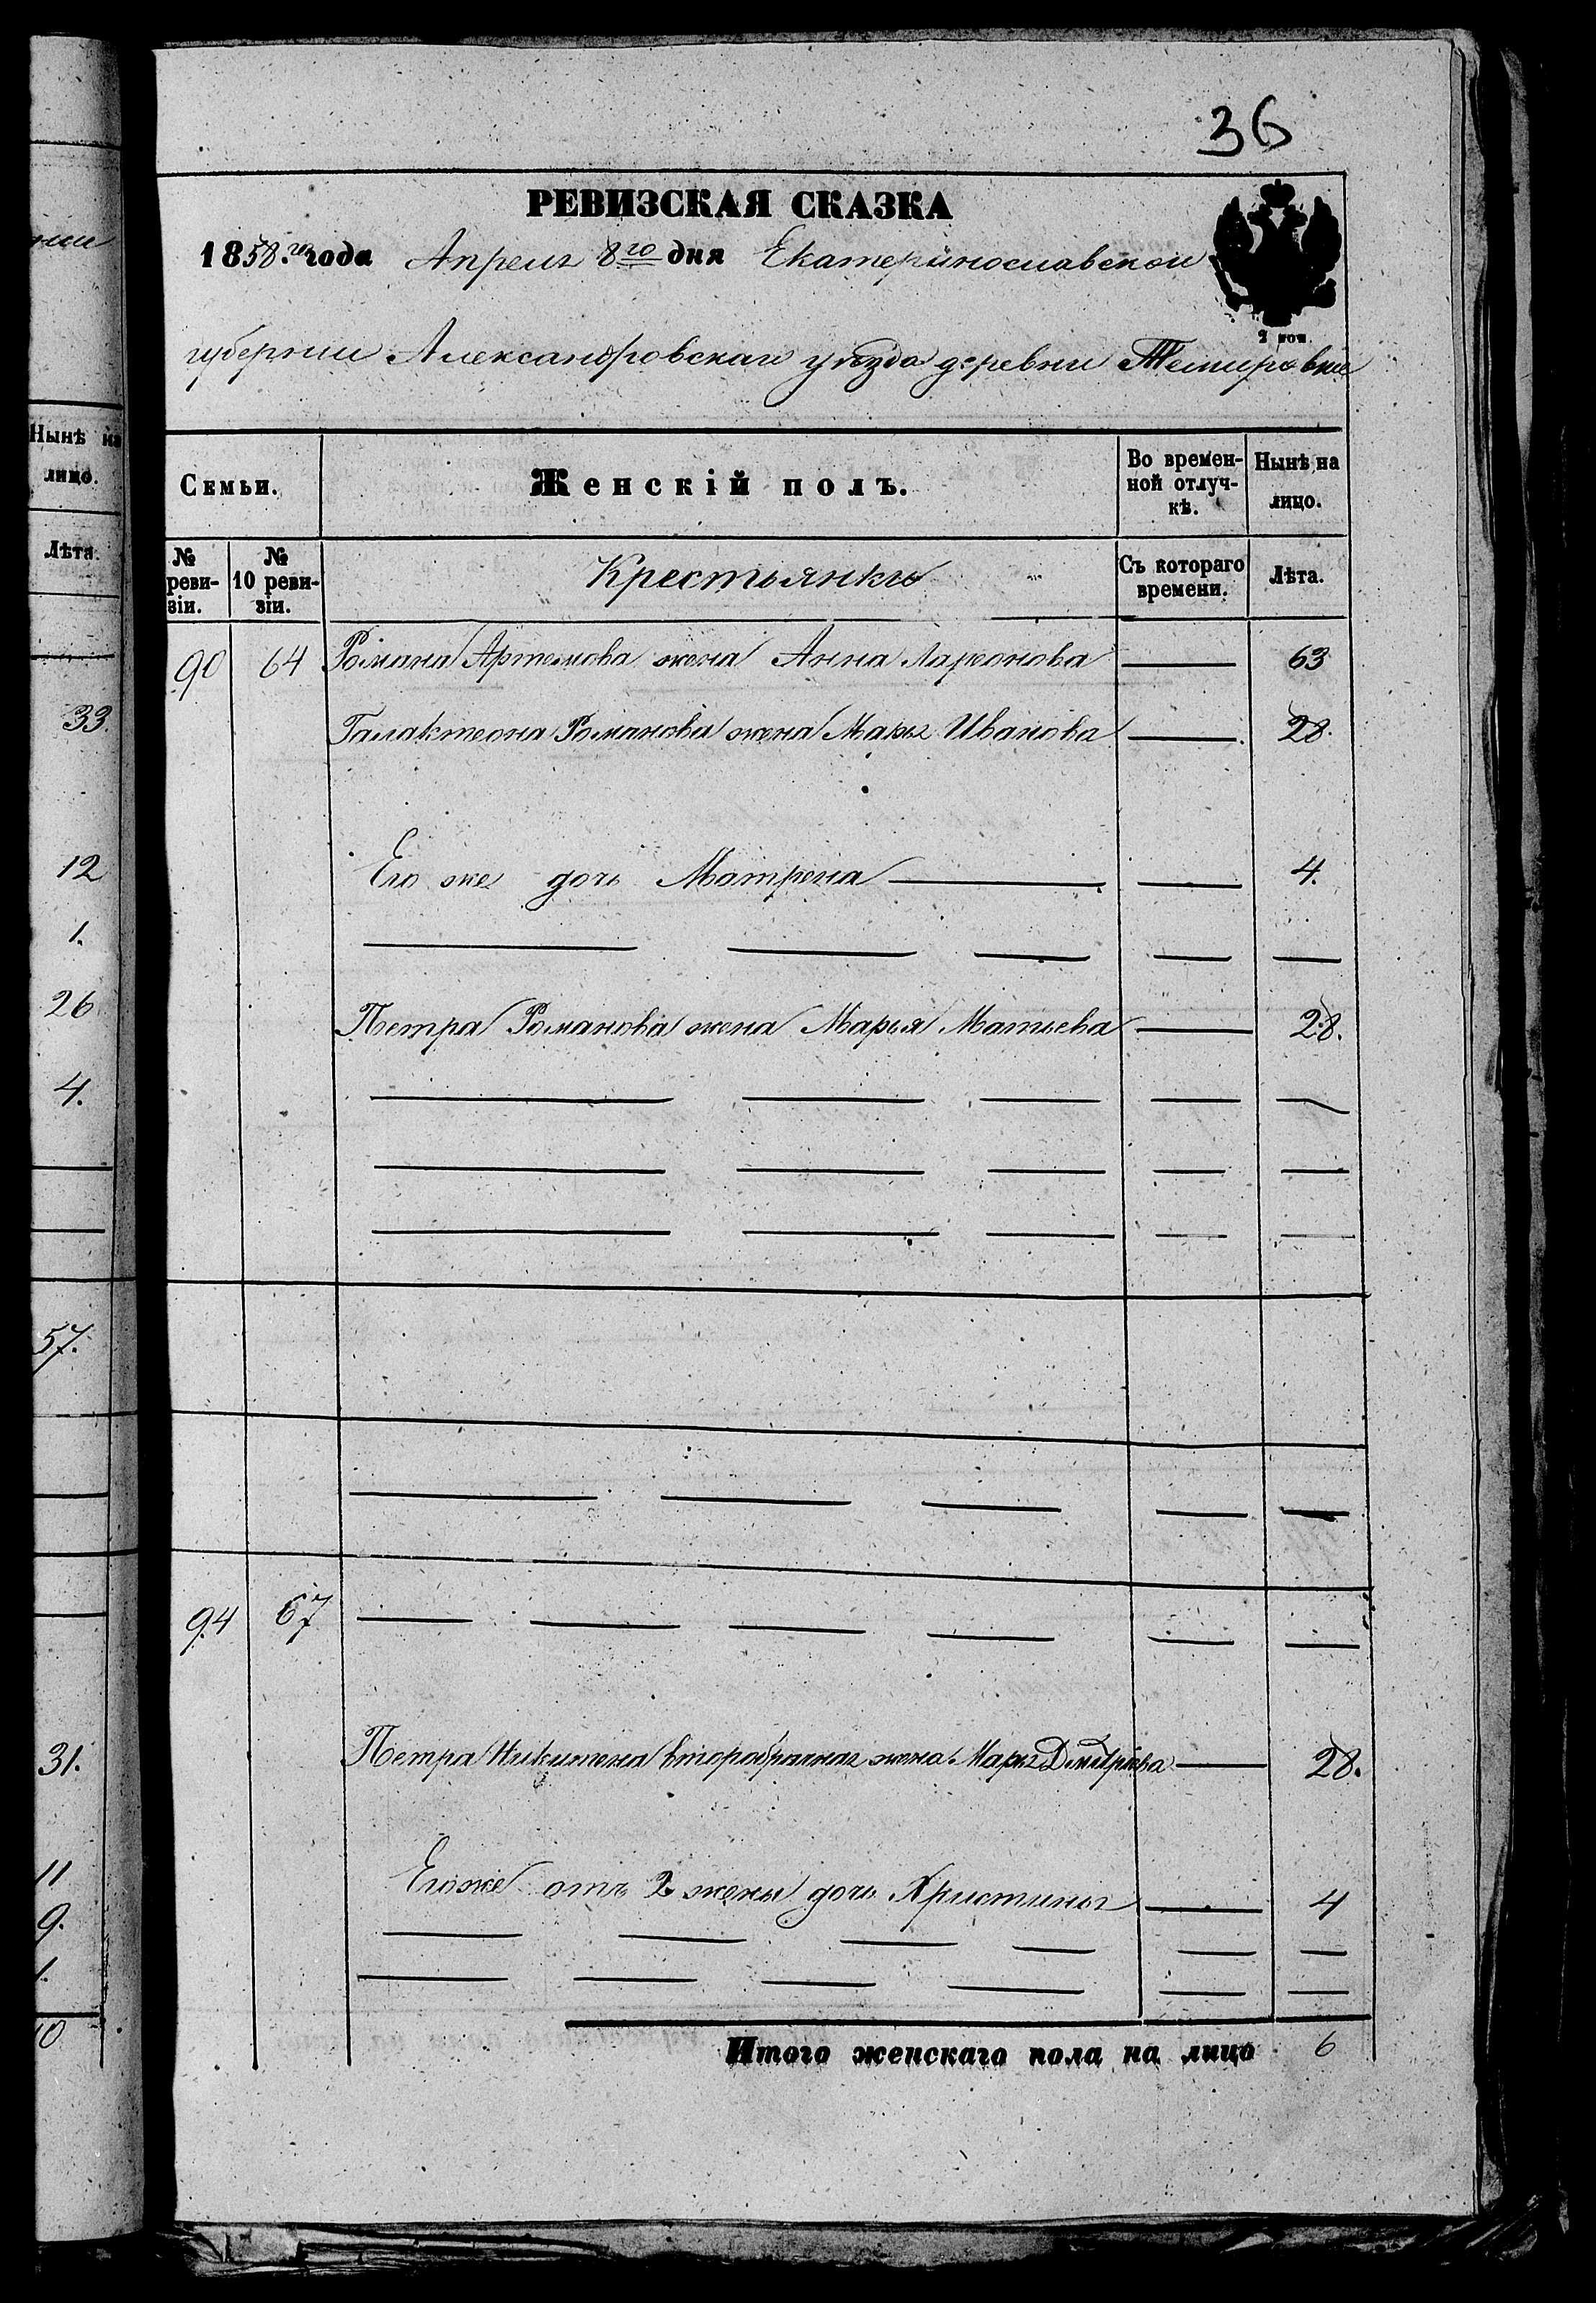 36
РЕВИЗСКАЯ СКАЗКА
1858.го года Апреля 8го дня Екатеринославской
2 коп.
губернии Александровскаго уѣзда деревни Темировки
Семьи.
Женскій полъ.
Во времен-
ной отлуч-
кѣ.
Нынѣ на
лицо.
№
реви-
зіи.
№
10 реви-
зіи.
Крестьянки
Съ котораго
времени.
Лѣта.
90 64 Романа Артемова жена Анна Ларионова — 63
Галактеона Романова жена Марья Иванова — 28.
Его же дочь Матрена — — 4.
Петра Романова жена Марья Матвева — 28.
94 67
Петра Никитена второбрачная жена Марья Дмитрева — 28.
Егоже отъ 2 жены дочь Христинья — 4
Итого женскаго пола на лицо 6
Нынѣ на
лицо.
Лѣта.
33.
12
1.
26
4.
57.
31.
11
9.
1.
10